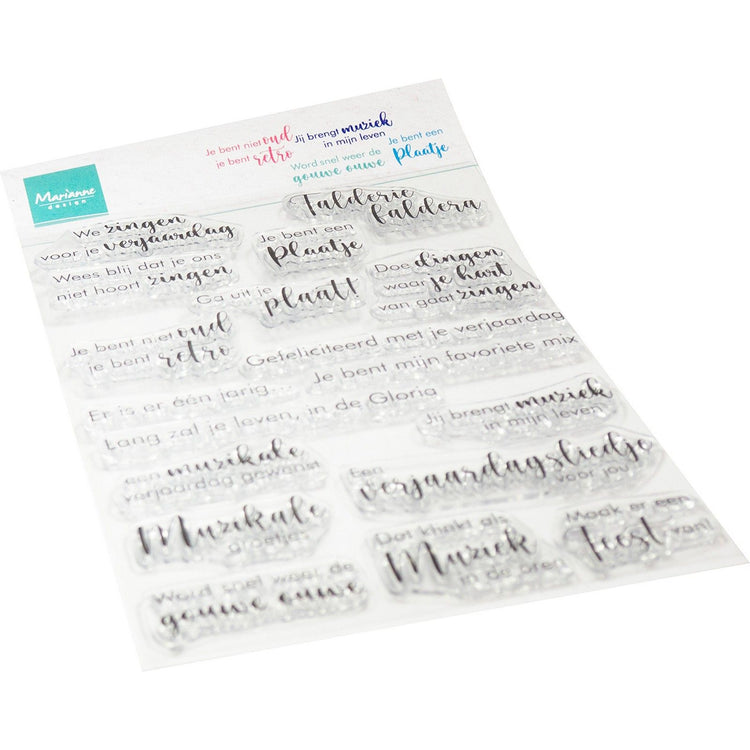 Je bent niet oud
je bent retro
Jij brengt muziek
in mijn leven
Word snel weer de
gouwe ouwe
Je bent een
Plaatje
Marianne
design
We zingen
voor je verjaardag
Falderie
faldera
Je bent een
Plaatje
Wees blij dat je ons
niet hoort zingen
Doe dingen
waar je hart
van gaat zingen
Ga uit je
plaat!
Je bent niet oud
je bent retro
Gefeliciteerd met je verjaardag
Je bent mijn favoriete mix
Er is er één jarig...
Lang zal je leven, in de Gloria
Jij brengt muziek
in mijn leven
een muzikale
verjaardag gewenst
Een
verjaardagsliedje
voor jou
Muzikale
groetjes
Dat klinkt als
Muziek
in de oren
Maak er een
feest van!
Word snel weer de
gouwe ouwe